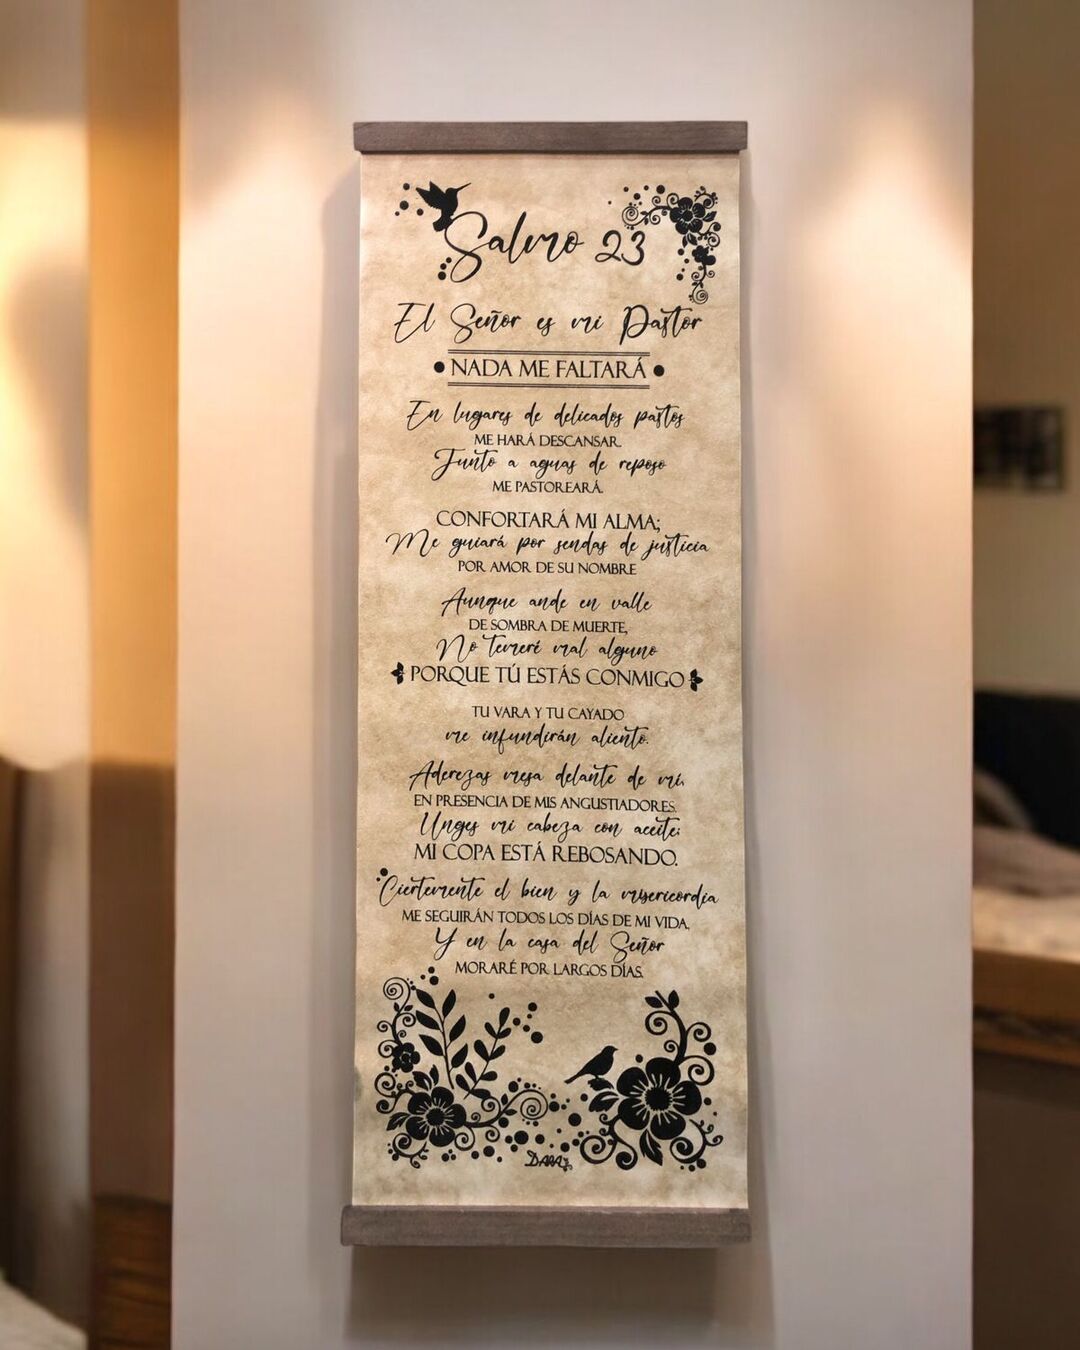 Salmo 23
El Señor es mi Pastor
NADA ME FALTARÁ
En lugares de delicados pastos
ME HARÁ DESCANSAR.
Junto a aguas de reposo
ME PASTOREARÁ.
CONFORTARÁ MI ALMA;
Me guiará por sendas de justicia
POR AMOR DE SU NOMBRE
Aunque ande en valle
DE SOMBRA DE MUERTE,
No temeré mal alguno
PORQUE TÚ ESTÁS CONMIGO
TU VARA Y TU CAYADO
me infundirán aliento.
Aderezas mesa delante de mí,
EN PRESENCIA DE MIS ANGUSTIADORES.
Unges mi cabeza con aceite;
MI COPA ESTÁ REBOSANDO.
Ciertemente el bien y la misericordia
ME SEGUIRÁN TODOS LOS DÍAS DE MI VIDA,
Y en la casa del Señor
MORARÉ POR LARGOS DÍAS.